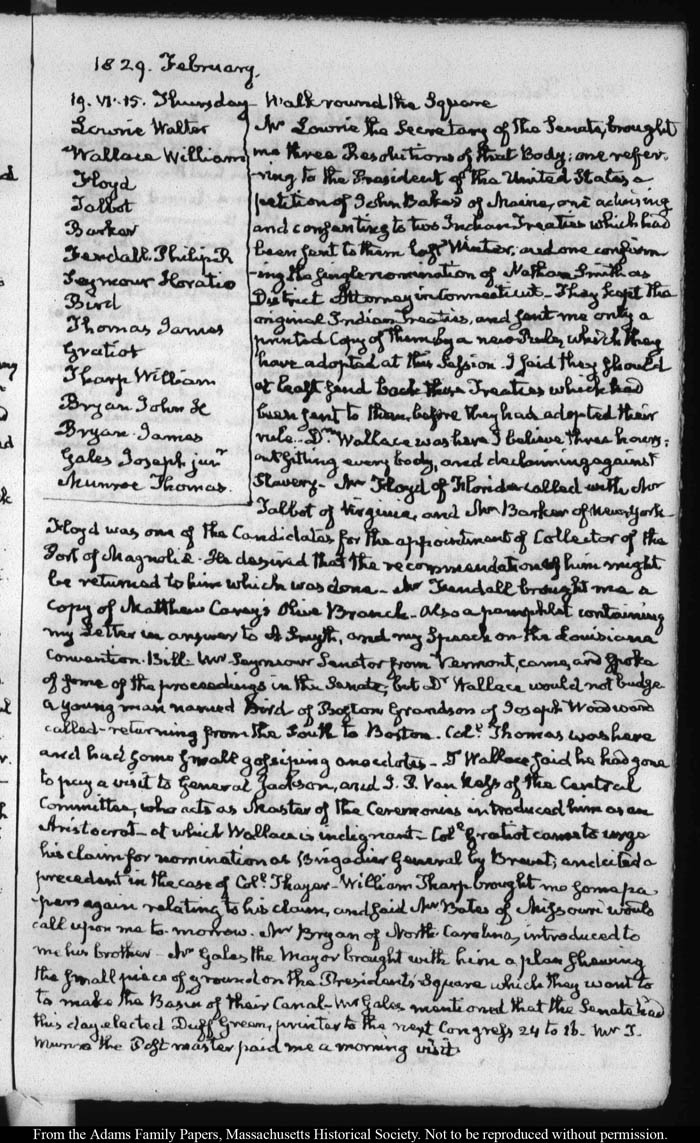 1829. February.
19. VI. 15. Thursday
Lowrie Walter
Wallace William
Floyd
Talbot
Barker
Fendall. Philip. R
Seymour Horatio
Bird
Thomas James
Gratiot
Tharp William
Bryan John H
Bryan. James
Gales Joseph junr
Munroe Thomas.
Walk round the Square
Mr Lowrie the Secretary of the Senate, brought
me three Resolutions of that Body; one refer-
-ring to the President of the United States a
petition of John Baker of Maine, one advising
and consenting to two Indian Treaties which had
been sent to them last Winter, and one confirm
-ing the single nomination of Nathan Smith as
District Attorney in Connecticut. They kept the
original Indian Treaties, and sent me only a
printed Copy of them by a new Rule, which they
have adopted at this Session. I said they should
at least send back these Treaties which had
been sent to them, before they had adopted their
rule. Dr Wallace was here I believe three hours;
outsitting every body, and declaiming against
Slavery. Mr Floyd of Florida called with Mr
Talbot of Virginia, and Mr Barker of New York.
Floyd was one of the Candidates for the appointment of Collector of the
Port of Magnolia. He desired that the recommendations of him might
be returned to him which was done. Mr Fendall brought me a
copy of Matthew Carey's Olive Branch. Also a pamphlet containing
my Letter in answer to A Smyth, and my Speech on the Louisiana
Convention Bill. Mr Seymour Senator from Vermont, came, and spoke
of some of the proceedings in the Senate, but Dr Wallace would not budge
a young man named Bird of Boston Grandson of Joseph Woodward
called. returning from the South to Boston. Coll. Thomas was here
and had some small gossiping anecdotes. Dr Wallace said he had gone
to pay a visit to General Jackson, and J. P. Van Ness of the Central
Committee, who acts as Master of the Ceremonies introduced him as an
Aristocrat. at which Wallace is indignant. Coll. Gratiot came to urge
his claim for nomination as Brigadier General by Brevet; and cited a
precedent in the case of Coll. Thayer. William Tharp brought me some pa
-pers again relating to his claim, and said Mr Bates of Missouri would
call upon me to-morrow. Mr Bryan of North-Carolina, introduced to
me his brother. Mr Gales the Mayor brought with him a plan shewing
the small piece of ground on the President's Square which they want to
to make the Basin of their Canal. Mr Gales mentioned that the Senate had
this day elected Duff Green, printer to the next Congress 24 to 16. Mr T.
Munroe the Post master paid me a morning visit.
From the Adams Family Papers, Massachusetts Historical Society. Not to be reproduced without permission.